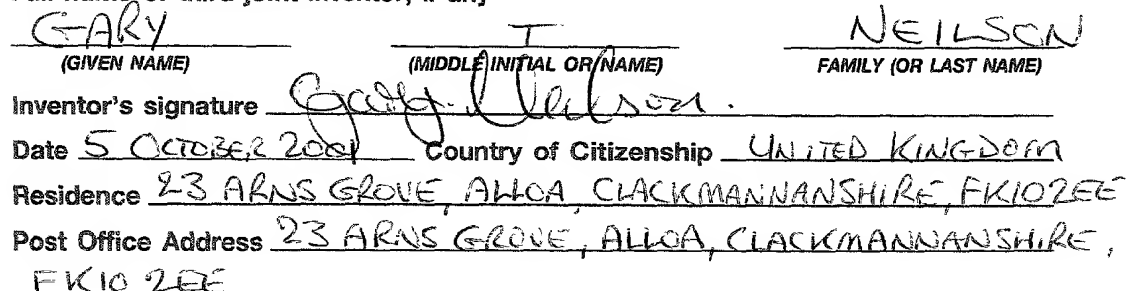 Full name of third joint inventor, if any
GARY T NEILSON
(GIVEN NAME) (MIDDLE INITIAL OR NAME) FAMILY (OR LAST NAME)
Inventor's signature Gary Neilson.
Date 5 OCTOBER 2001 Country of Citizenship UNITED KINGDOM
Residence 23 ARNS GROVE, ALLOA, CLACKMANNANSHIRE, FK102EE
Post Office Address 23 ARNS GROVE, ALLOA, CLACKMANNANSHIRE,
FK10 2EE